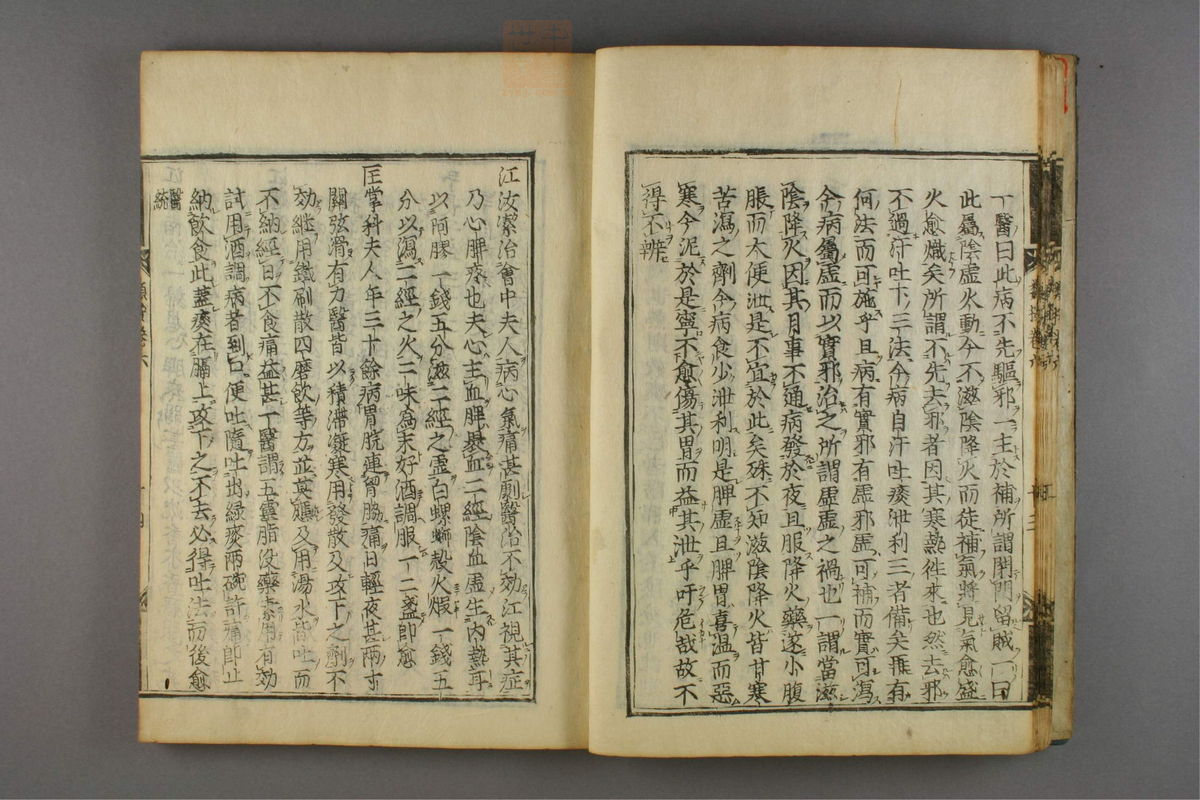 一醫曰此病不先驅邪一主於補所謂閉門留賊一曰
此屬陰虛火動今不滋陰降火而徒補氣將見氣愈盛
火愈熾矣所謂不先去邪者因其寒熱徃來也然去邪
不過汗吐下三法今病自汗吐痰泄利三者備矣無有
何法而可施乎且病有實邪有虛邪虛可補而實可瀉
今病屬虛而以實邪治之所謂虛虛之禍也一謂當滋
陰降火因其月事不通病發於夜且服降火藥遂小腹
脹而大便泄是不宜於此矣殊不知滋陰降火皆甘寒
苦瀉之劑今病食少泄利明是脾虛且脾胃喜温而惡
寒今泥於是寧不愈傷其胃而益其泄乎吁危哉故不
得不辨
江汝潔治會中夫人病心氣痛甚劇醫治不効江視其症
乃心脾疼也夫心主血脾褁血二經陰血虛生内熱耳
以阿膠一錢五分滋二經之虛白螺螄殼火煆一錢五
分以瀉二經之火二味為末好酒調服一二盞即愈
匡掌科夫人年三十餘病胃脘連胷脇痛日輕夜甚兩寸
關弦滑有力醫皆以積滯凝寒用發散及攻下之劑不
効継用鐵刷散四磨飲等方並莫應及用湯水皆吐而
不納經日不食痛益甚一醫謂五靈脂没藥素用有効
試用酒調病者到口便吐隨吐出緑痰兩碗許痛即止
納飲食此蓋痰在膈上攻下之不去必得吐法而後愈
醫統